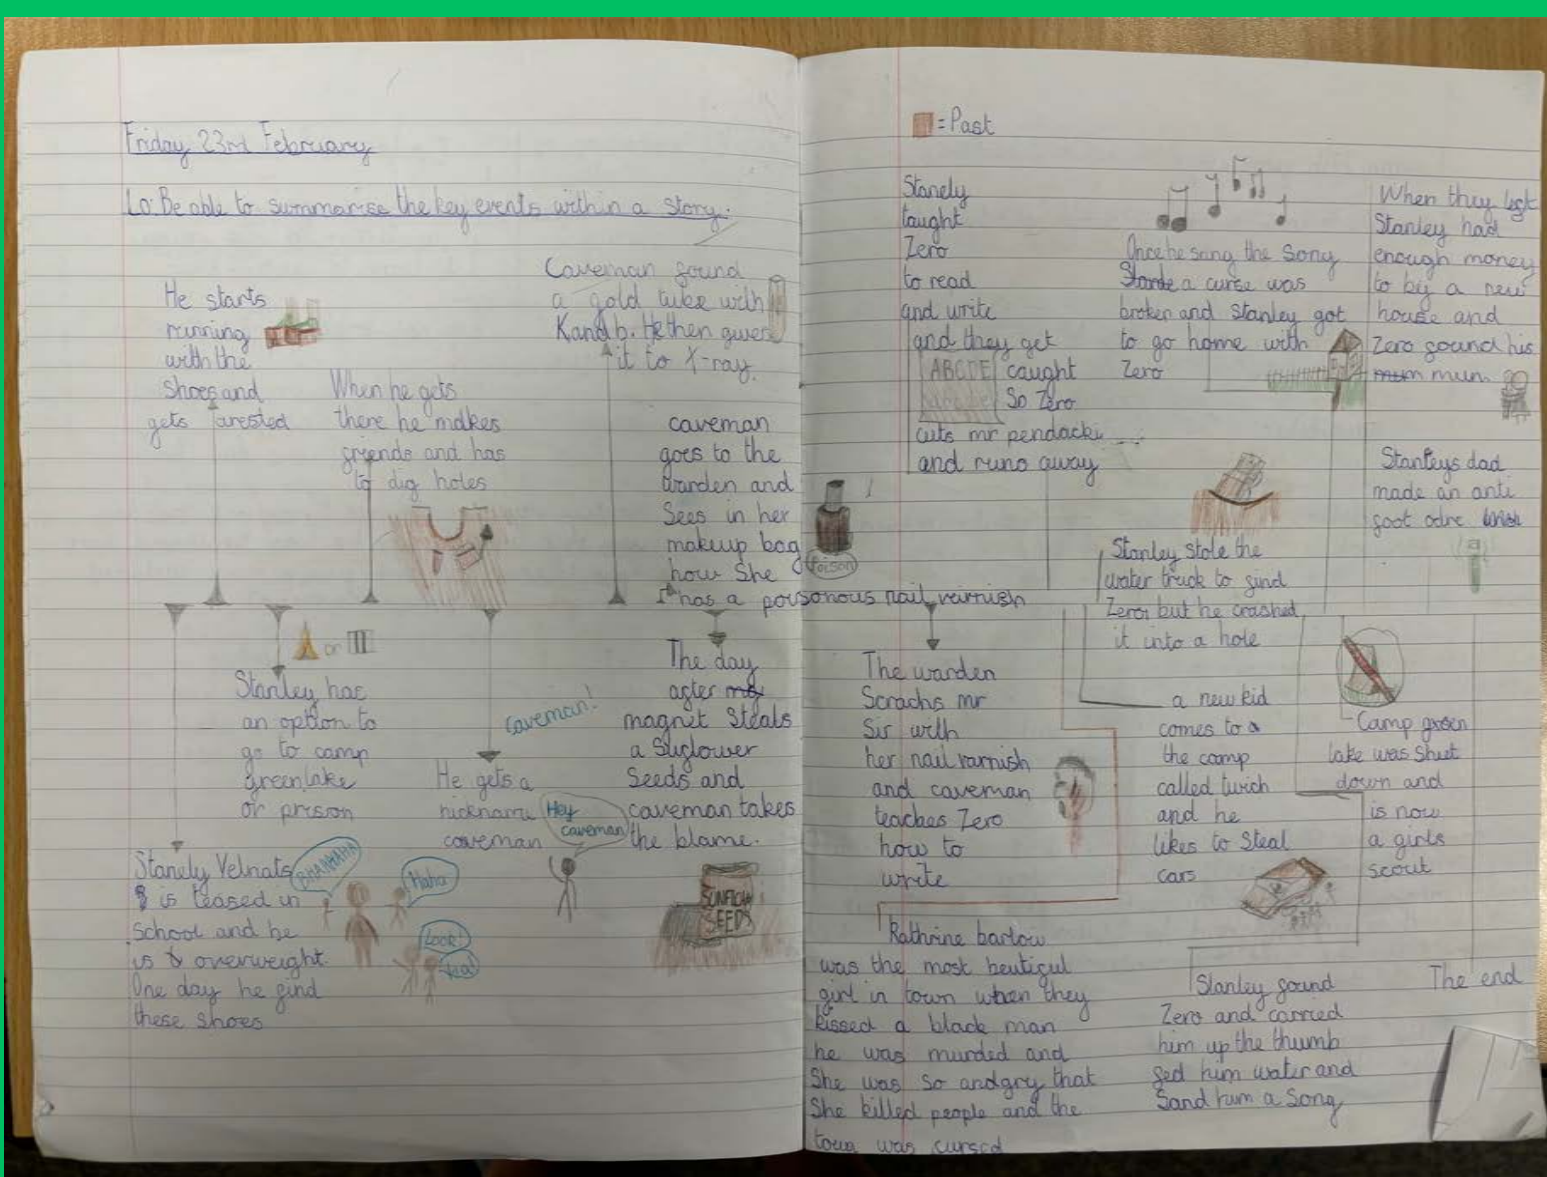 Friday 23rd February
Lo: Be able to summarise the key events within a story.
He starts
running
with the
shoes and
gets arested
When he gets
there he makes
friends and has
to dig holes
Caveman found
a gold tube with
K and b. He then gives
it to X-ray.
caveman
goes to the
Warden and
Sees in her
makeup bag
how She
has a poisonous nail varnish
Poison
or
Stanley has
an option to
go to camp
greenlake
or prison
caveman!
He gets a
nickname
caveman
Hey
caveman
The day
after
magnet Steals
a
Seeds and
caveman takes
the blame.
SUNFLOW
SEEDS
Stanely Yelnats
is teased in
school and he
is overweight.
One day he find
these shoes
BHAHAHAHA
Haha
Look!
=Past
Stanely
taught
Zero
to read
and write
and they get
caught
So Zero
cuts mr pendacki
and runs away
ABCDE
Once he sang the song
a curse was
broken and Stanley got
to go home with
Zero
When they
Stanley had
enough money
to by a new
house and
Zero found his
mum.
Stanleys dad
made an anti
foot
Stanley stole the
water truck to find
Zero, but he crashed
it into a hole
The warden
Scrachs mr
Sir with
her nail varnish
and caveman
teaches Zero
how to
write
a new kid
comes to a
the camp
called twich
and he
likes to Steal
cars
Camp green
lake was Shut
down and
is now
a girls
scout
Kathrine barlow
was the most beutiful
girl in town when they
kissed a black man
he was murded and
She was so andgry that
She killed people and the
town was cursed
Stanley found
Zero and carried
him up the thumb
fed him water and
Sand him a Song
The end